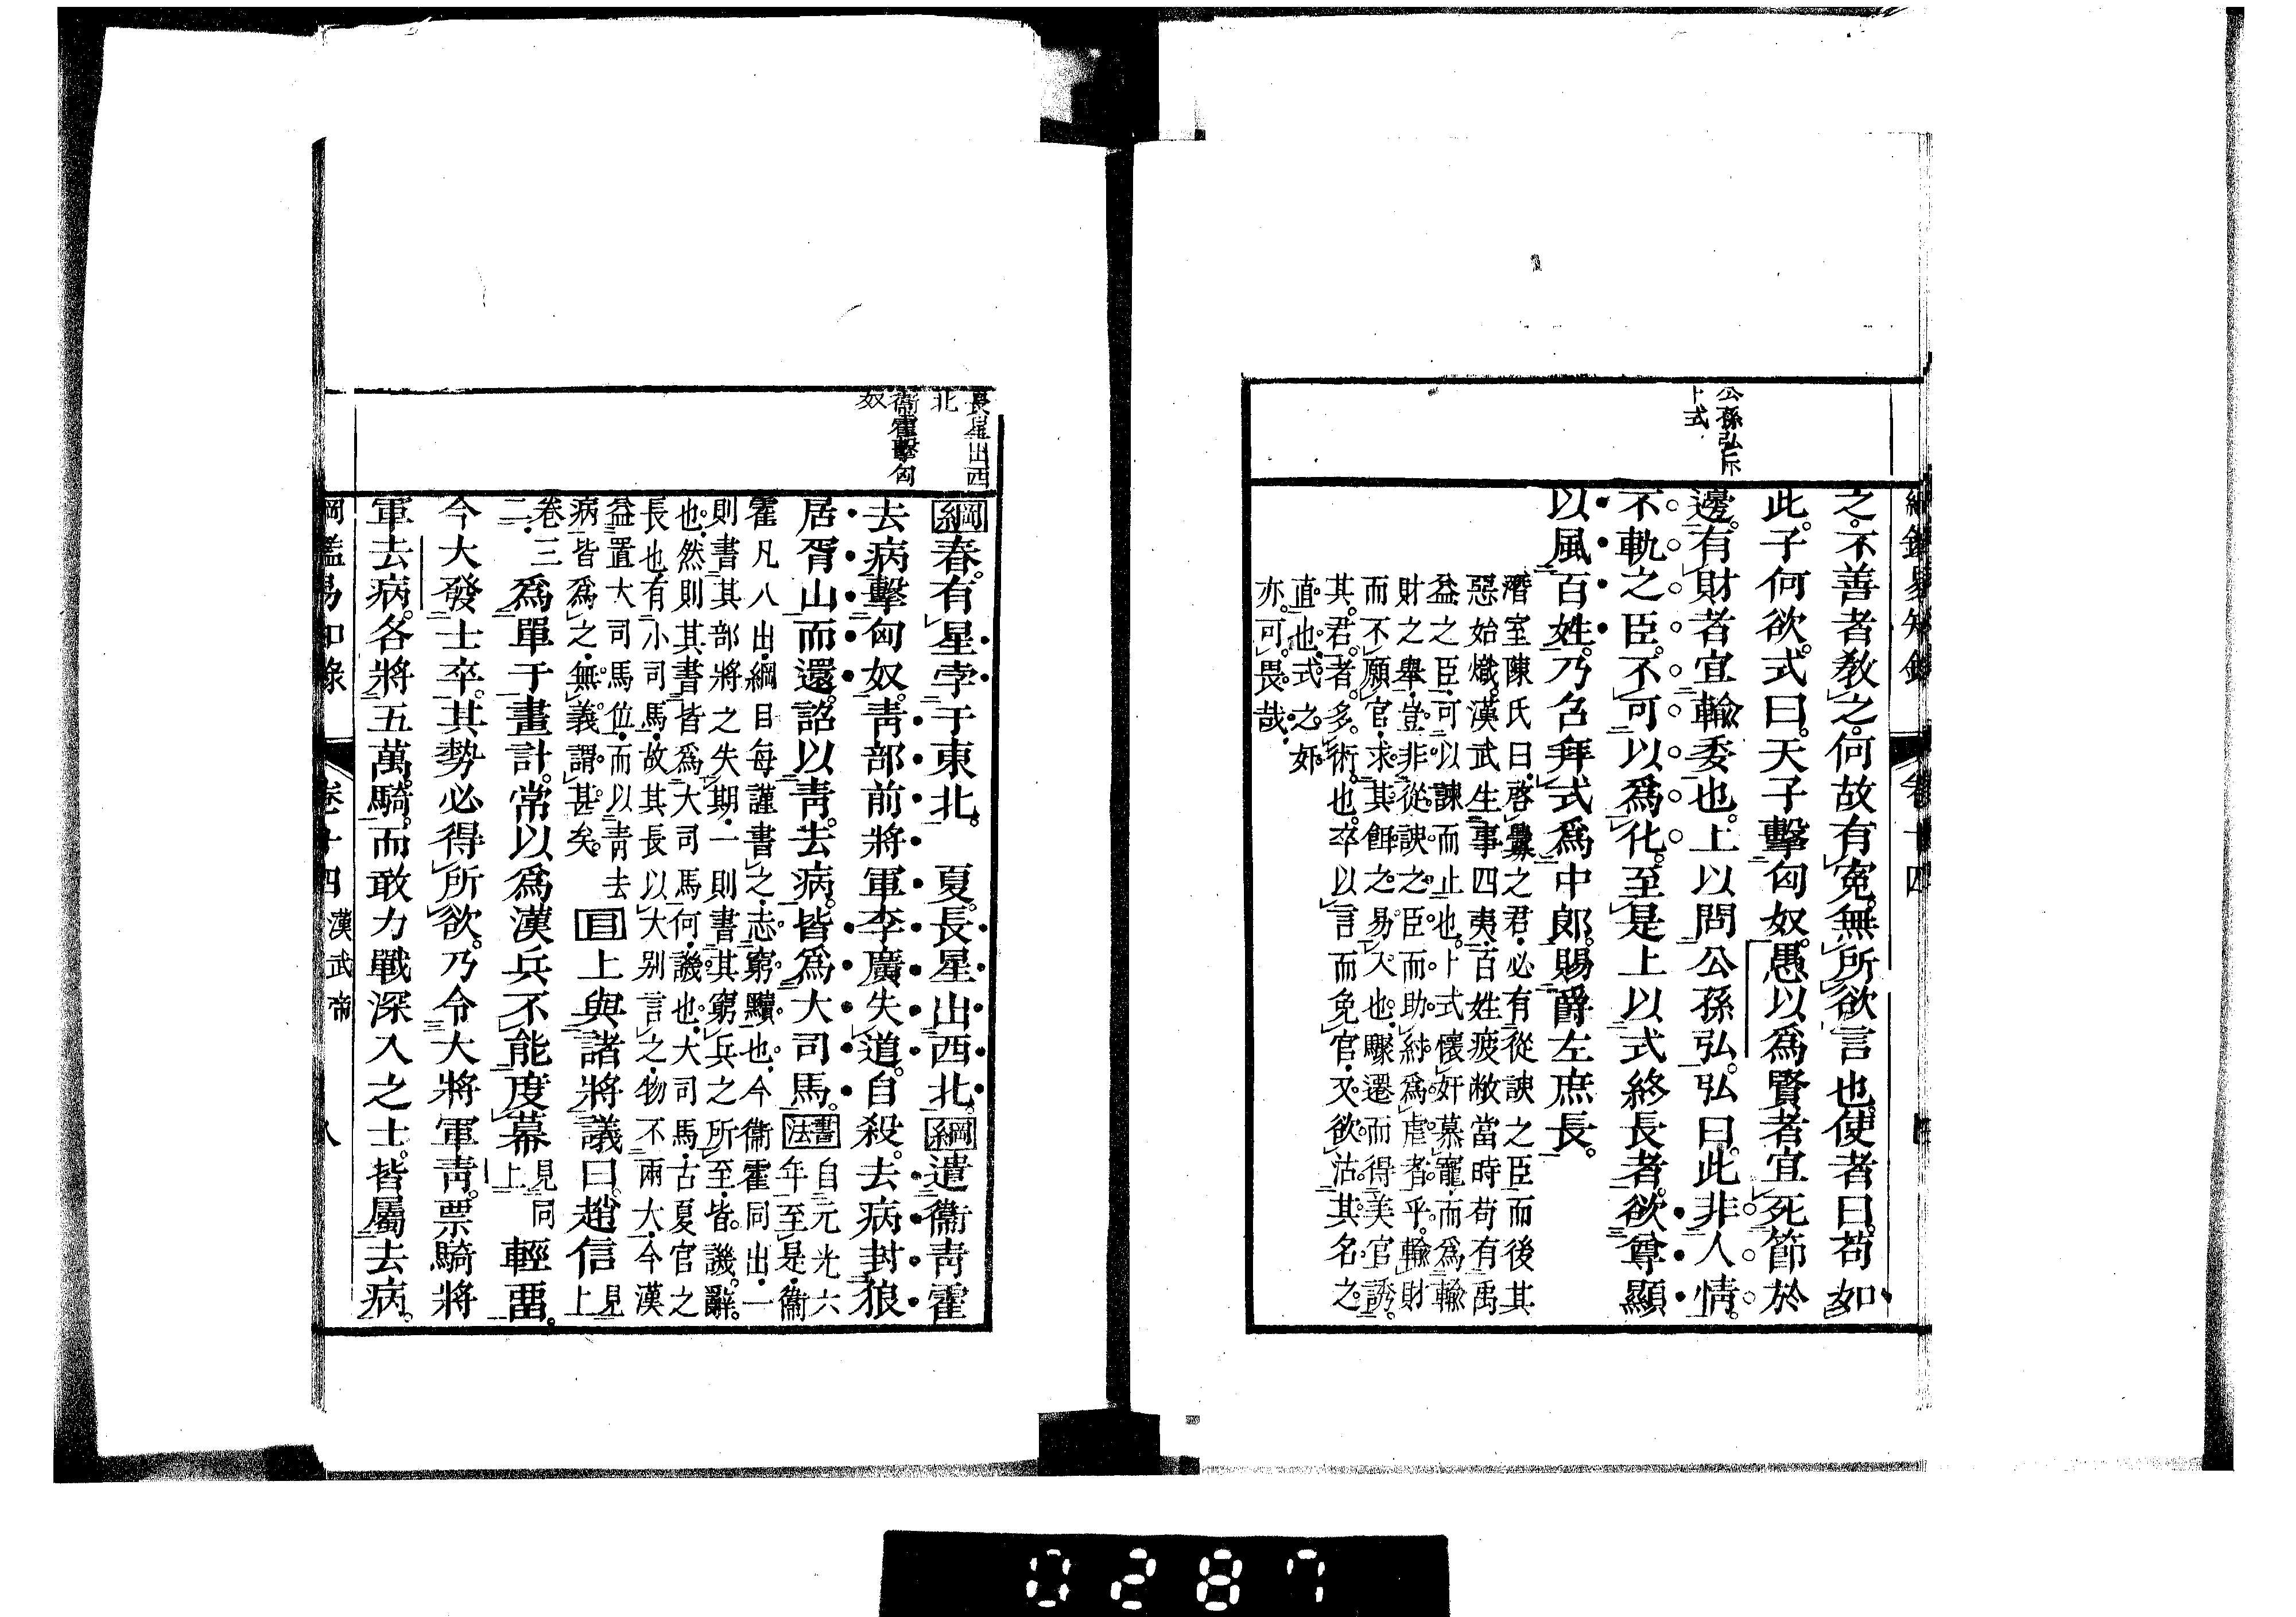 綱鑑易知錄 卷十四
公孫弘斥
卜式
之。不善者教之。何故有冤。無所欲言也。使者曰。苟如
此。子何欲。式曰。天子擊匈奴。愚以爲賢者宜死節於
邊。有財者宜輸委也。上以問公孫弘。弘曰。此非人情。
不軌之臣。不可以爲化。至是上以式終長者。欲尊顯
以風百姓。乃召拜式爲中郎。賜爵左庶長。
潛室陳氏曰。啓釁之君。必有從諛之臣。而後其
惡始熾。漢武生事四夷。百姓疲敝。當時苟有禹
益之臣。可以諫而止也。卜式懷奸慕寵。而爲輸
財之舉。豈非從諛之臣。而助紂爲虐者乎。輸財
而不願官。求其餌之。易人也。驟遷而得美官。誘
其君者多術也。卒以言而免官。又欲沽其名之
直也。式之奸。
亦可畏哉。
長星出西
北
衞霍擊匈
奴
綱春。有星孛于東北。 夏。長星出西北。綱遣衞青霍
去病擊匈奴。青部前將軍李廣失道。自殺。去病封狼
居胥山而還。詔以青。去病。皆爲大司馬。書法自元光六
年至是。衞
霍凡八出。綱目每謹書之。志窮黷也。今衞霍同出。一
則書其部將之失期。一則書其窮兵之所至。皆譏辭
也。然則其書皆爲大司馬何。譏也。大司馬。古夏官之
長也。有小司馬。故其長以大別言之。物不兩大。今漢
益置大司馬位。而以青去
病皆爲之。無義謂甚矣。目上與諸將議曰。趙信見上
卷三
二。爲單于畫計。常以爲漢兵不能度幕見同
上輕畱。
今大發士卒。其勢必得所欲。乃令大將軍青。票騎將
軍去病。各將五萬騎。而敢力戰深入之士。皆屬去病。
綱鑑易知錄 卷十四 漢武帝 八
0287